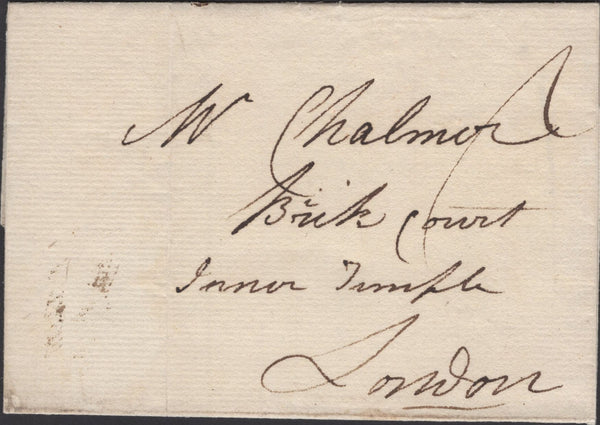 Mr Chalmer
Brick Court
Inner Temple
London